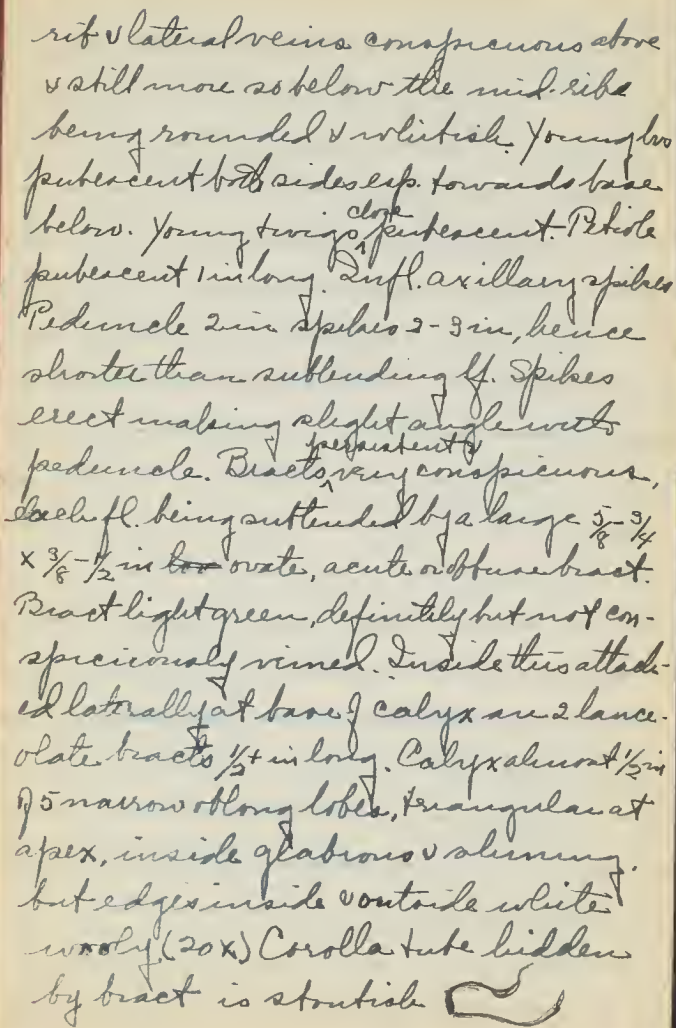 rib & lateral veins conspicuous above
& still more so below the mid-ribs
being rounded & whitish. Young lvs
pubescent both sides esp. towards base
below. Young twigs close pubescent. Petiole
pubescent 1 in long. Infl. axillary spikes
Peduncle 2 in spikes 2-3 in, hence
shorter than subtending lf. Spikes
erect making slight angle with
peduncle. Bracts persistent & very conspicuous,
each fl. being subtended by a large 5/8-3/4
x 3/8-1/2 in ovate, acute or obtuse bract.
Bract light green, definitely but not con-
spiciously veined. Inside this attach-
ed laterally at base of calyx are 2 lance-
olate bracts 1/2+ in long. Calyx almost 1/2 in
of 5 narrow oblong lobes, triangular at
apex, inside glabrous & shining.
but edges inside & outside white
wooly. (20x) Corolla tube hidden
by bract is stoutish